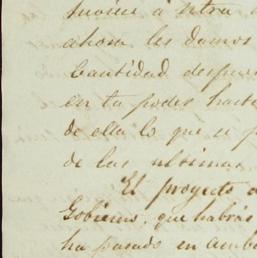 á ntra
ahora les damos
Cantidad despues
en tu poder hasta
de ella lo que se p
de las ultimas
El proyecto
Gobierno, que habrás
ha pasado en amb